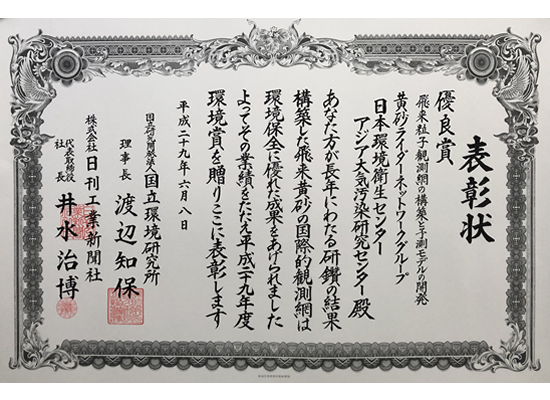 表彰状
優良賞
飛来粒子観測網の構築と予測モデルの開発
黄砂ライダーネットワークグループ
日本環境衛生センター
アジア大気汚染研究センター殿
あなた方が長年にわたる研鑽の結果
構築した飛来黄砂の国際的観測網は
環境保全に優れた成果をあげられました
よってその業績をたたえ平成二十九年度
環境賞を贈りここに表彰します
平成二十九年六月八日
国立研究開発法人国立環境研究所
理事長 渡辺知保
株式会社日刊工業新聞社
代表取締役社長 井水治博